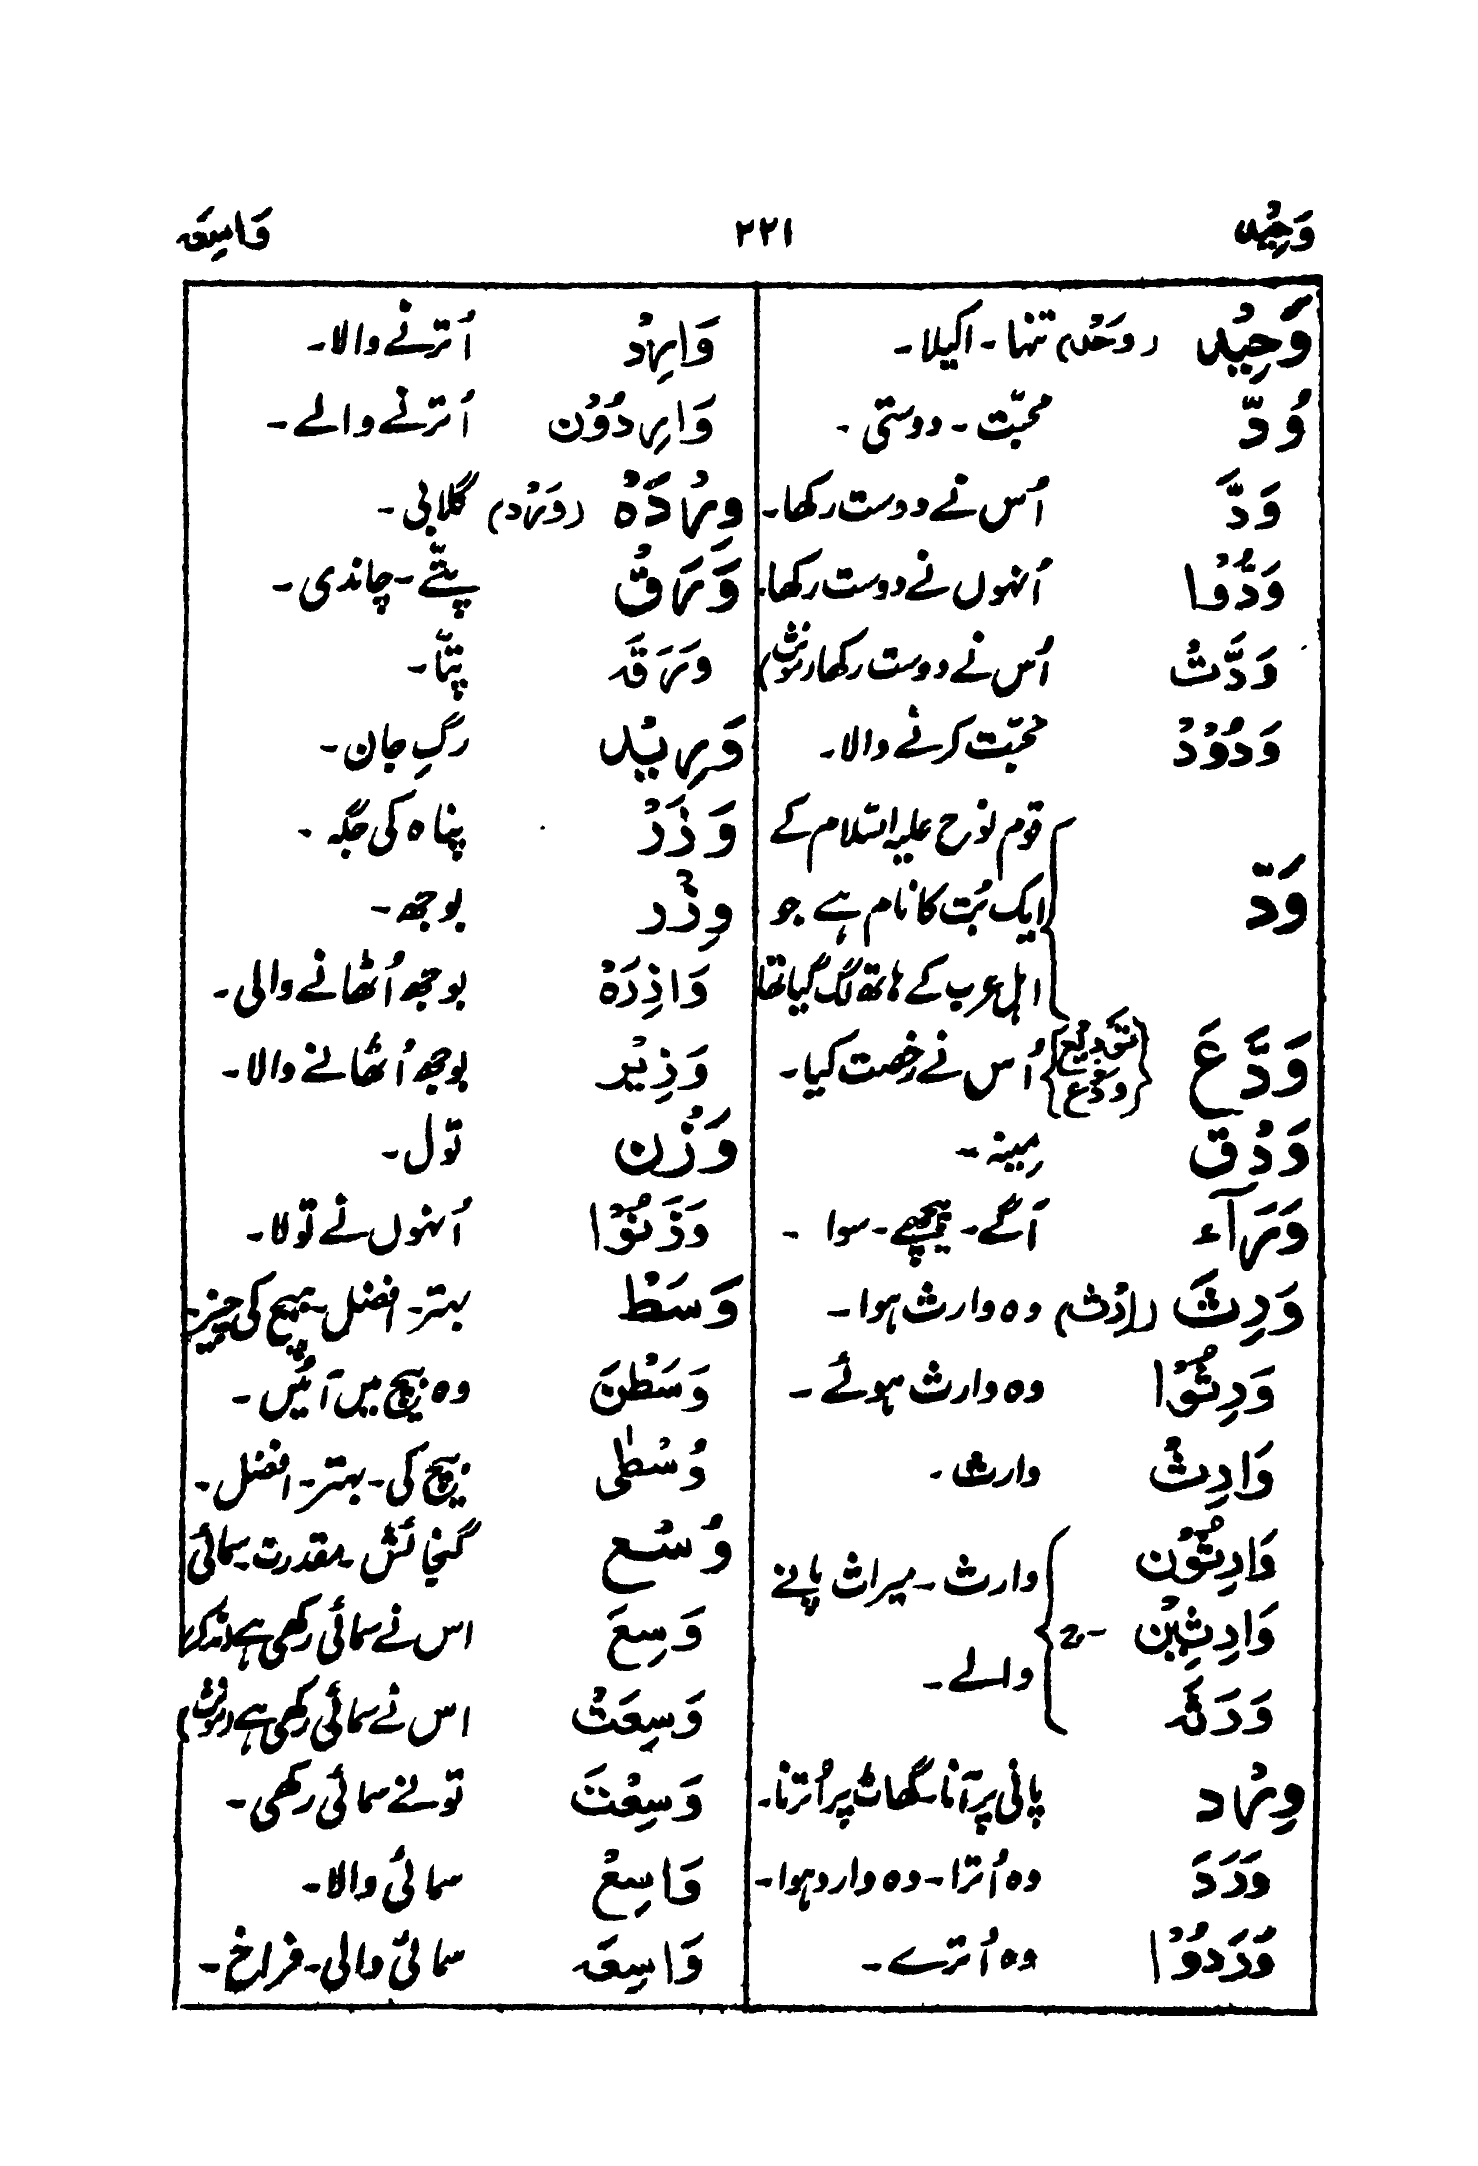 وَحِيْد ۲۲۱ وَاسِعَه
وَحِيْد (وحد) تنہا۔ اکیلا۔
وُدّ محبّت۔ دوستی۔
وَدَّ اُس نے دوست رکھا۔
وَدُّوْا اُنہوں نے دوست رکھا۔
وَدَّتْ اُس نے دوست رکھا (مونث)
وَدُوْدُ محبّت کرنے والا۔
وَدّ قوم نوح علیہ السّلام کے
ایک بُت کا نام ہے جو
اہل عرب کے ہاتھ لگ گیا تھا
وَدَّعَ {تَوْدِيْع وَدْع} اُس نے رخصت کیا۔
وَدْق مِینہ۔
وَرَآء آگے۔ پیچھے۔ سوا۔
وَرِثَ (اِرْث) وہ وارث ہوا۔
وَرِثُوْا وہ وارث ہوئے۔
وَارِث وارث۔
وَارِثُوْن
وَارِثِيْن ۔ج
وَرَثَه
وارث۔ میراث پانے
والے۔
وِرْد پانی پر آنا۔ گھاٹ پر اُترنا۔
وَرَدَ وہ اُترا۔ وہ وارد ہوا۔
وَرَدُوْا وہ اُترے۔
وَارِدُ اُترنے والا۔
وَارِدُوْن اُترنے والے۔
وِرْدَةْ (وَرْد) گلابی۔
وَرَق پتّے۔ چاندی۔
وَرَقَه پتّا۔
وَرِيْد رگِ جان۔
وَزَرْ پناہ کی جگہ۔
وِزْر بوجھ۔
وَازِرَةْ بوجھ اُٹھانے والی۔
وَزِيْر بوجھ اُٹھانے والا۔
وَزْن تول۔
وَزَنُوْا اُنہوں نے تولا۔
وَسَطْ بہتر۔ افضل۔ بیچ کی چیز۔
وَسَطْنَ وہ بیچ میں آئیں۔
وُسْطٰى بیچ کی۔ بہتر۔ افضل۔
وُسْع گنجائش۔ مقدرت۔ سمائی
وَسِعَ اس نے سمائی رکھی ہے (مذکر)
وَسِعَتْ اس نے سمائی رکھی ہے (مونث)
وَسِعْتَ تو نے سمائی رکھی۔
وَاسِعْ سمائی والا۔
وَاسِعَه سمائی والی۔ فراخ۔